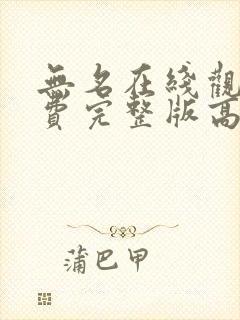 無名在綫觀
費完整版高
蒲巴甲